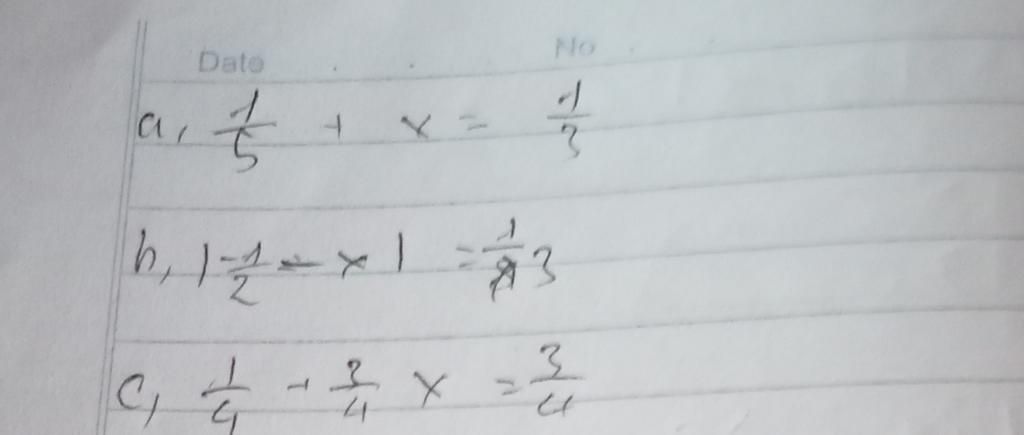 Date . . No .
a, 1/5 + x = 1/3
b, |-1/2 - x| = 1/3
c, 1/4 + 3/4 x = 3/4